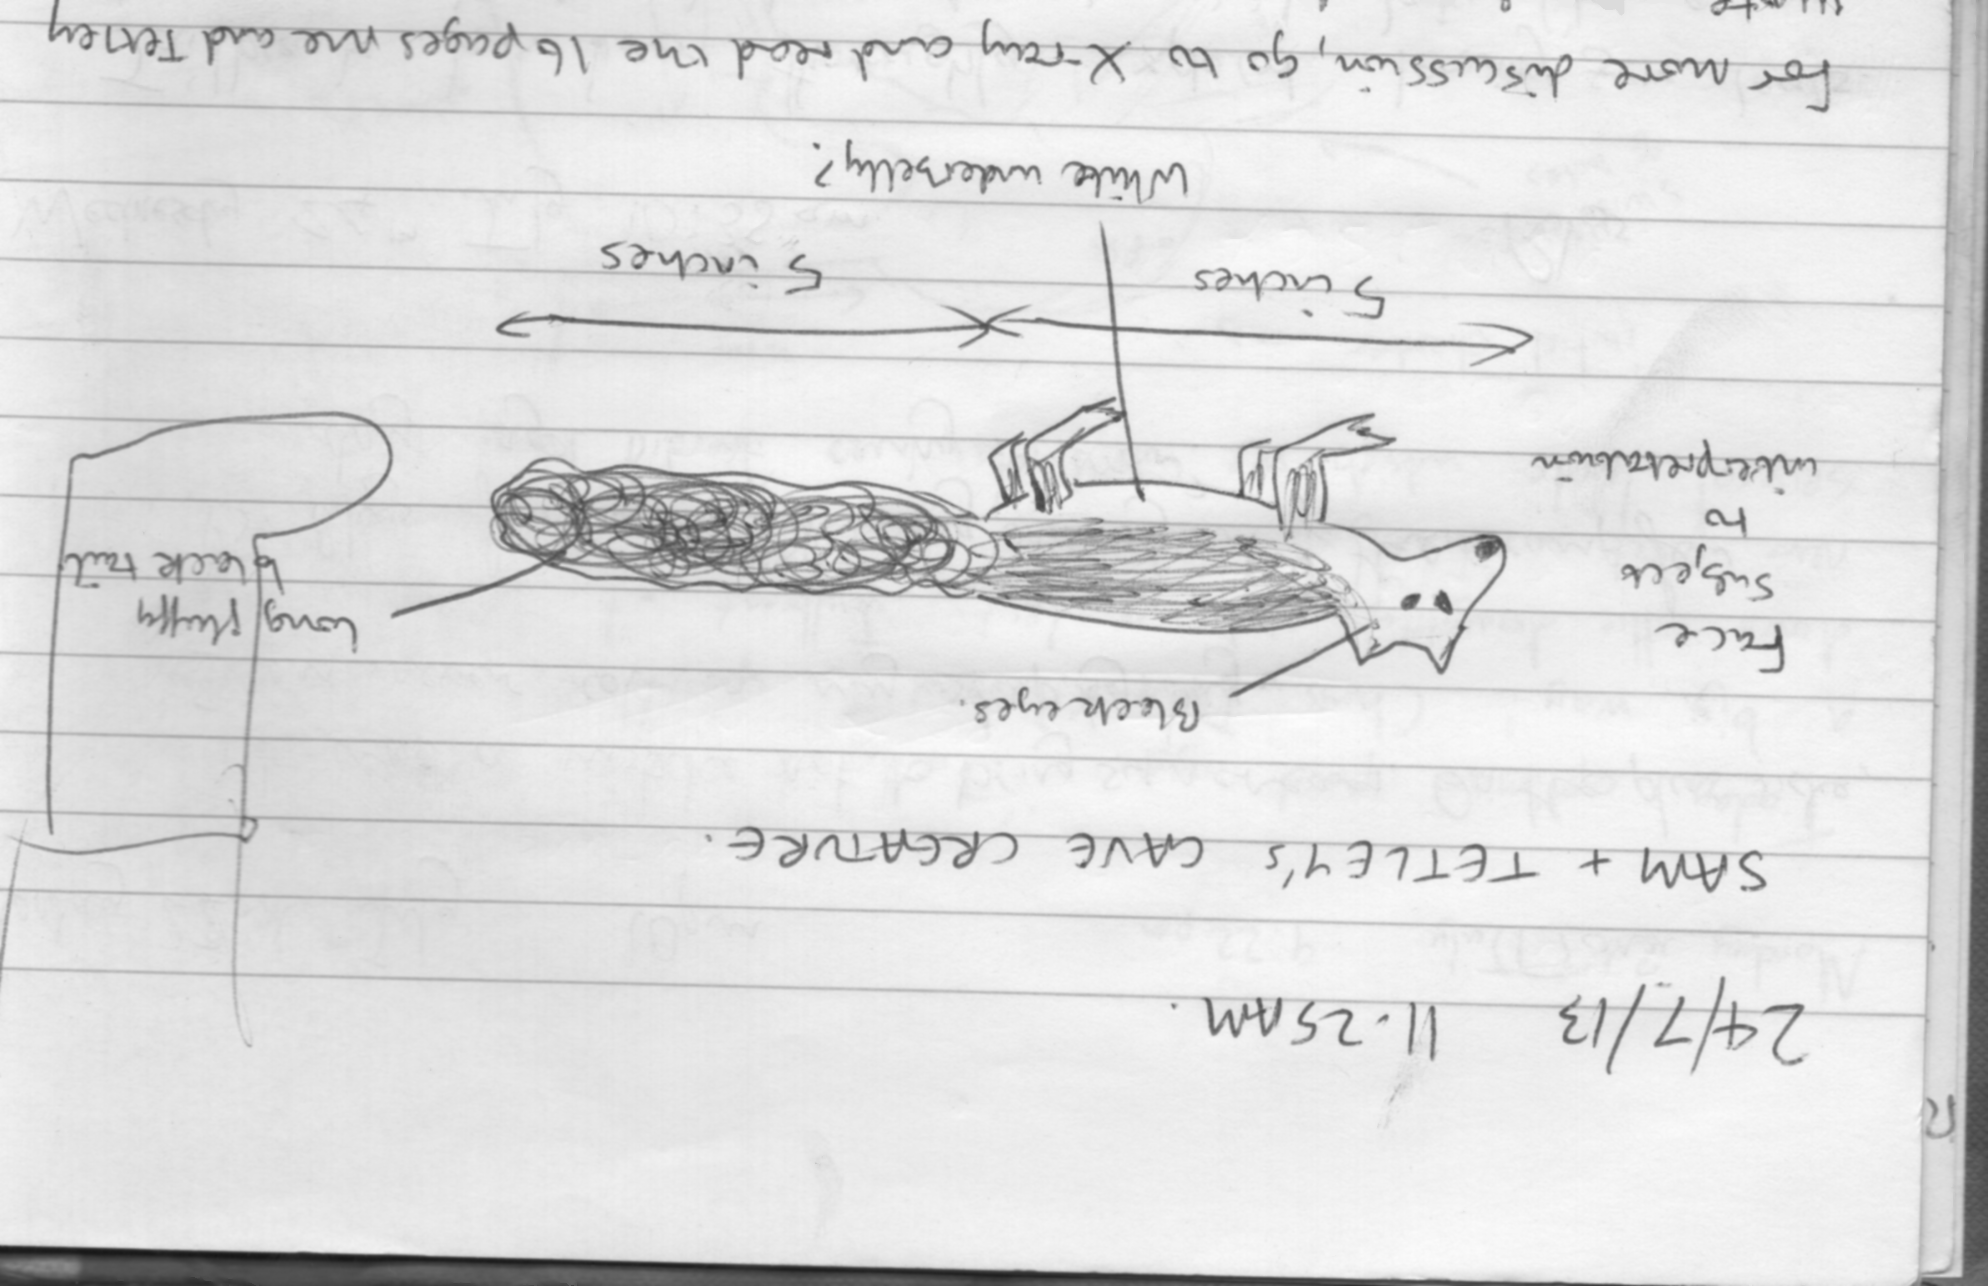 24/7/13 11.25AM.
SAM + TETLEY's CAVE CREATURE.
Black eyes.
Face
subject
to
interpretation
Long fluffy
black tail
5 inches
5 inches
White underbelly?
For more discussion, go to X-ray and read the 16 pages me and Tetley
wrote